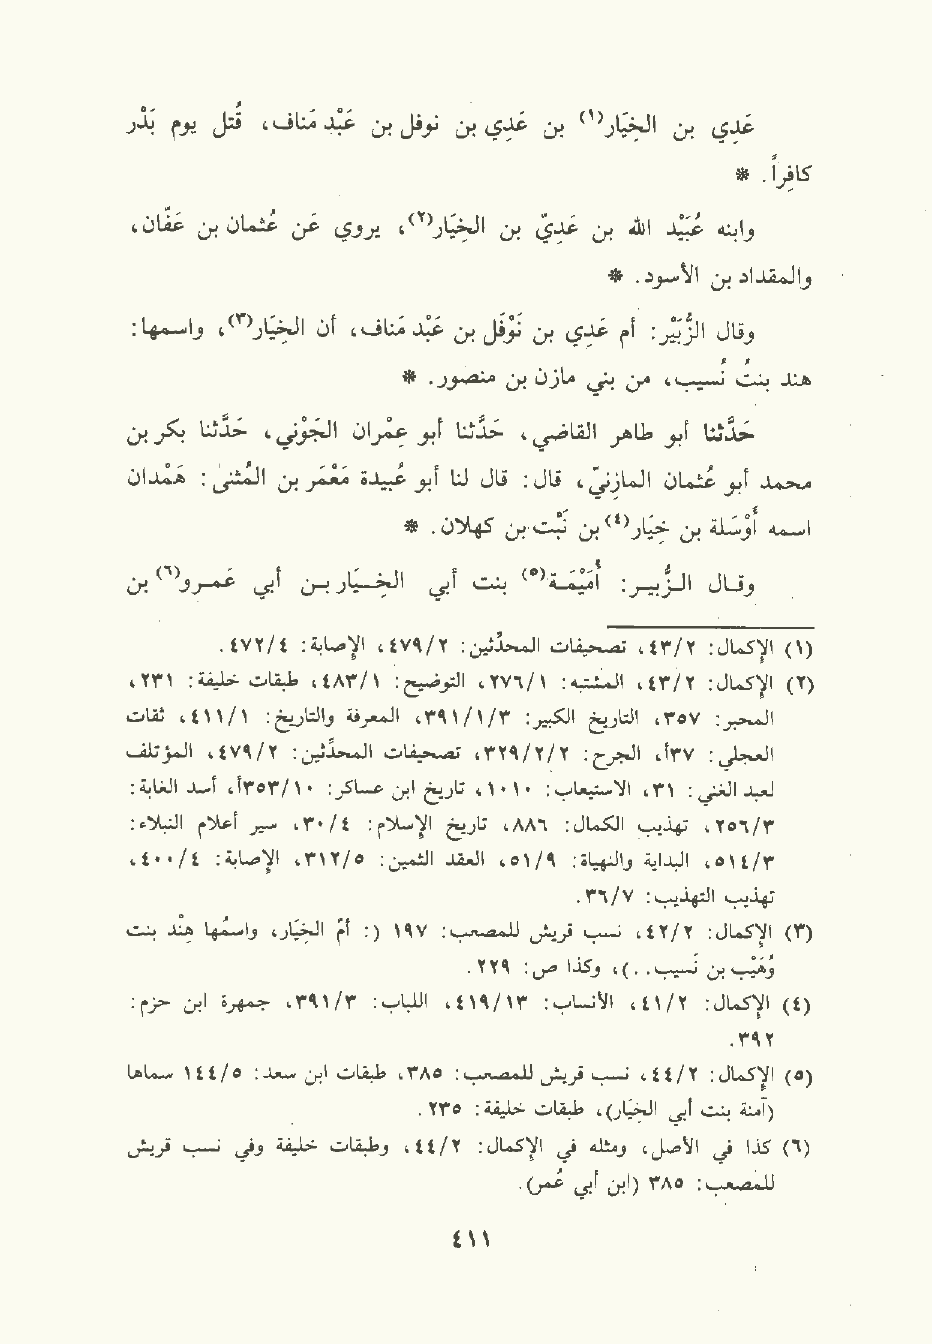 عَدِي بن الخِيَار(١) بن عَدِي بن نوفل بن عَبْد مَناف، قُتل يوم بَدْر
كافِراً. *
وابنه عُبَيْد الله بن عَدِيّ بن الخِيَار(٢)، يروي عَن عُثمان بن عَفَّان،
والمقداد بن الأسود. *
وقال الزُّبَيْر: أم عَدِي بن نَوْفَل بن عَبْد مَناف، أن الخِيَار(٣)، واسمها:
هند بنتُ نُسيب، من بني مازن بن منصور. *
حَدَّثنا أبو طاهر القاضي، حَدَّثنا أبو عِمْران الجَوْني، حَدَّثنا بكر بن
محمد أبو عُثمان المازِنيّ، قال: قال لنا أبو عُبيدة مَعْمَر بن المُثنىَ: هَمْدان
اسمه أَوْسَلة بن خِيَار(٤) بن نَبْت بن كهلان. *
وقال الزُّبير: أُمَيْمَة(٥) بنت أبي الخِيَار بن أبي عَمرو(٦) بن
(١) الإكمال: ٤٣/٢، تصحيفات المحدِّثين: ٤٧٩/٢، الإصابة: ٤٧٢/٤.
(٢) الإكمال: ٤٣/٢، المشتبه: ٢٧٦/١، التوضيح: ٤٨٣/١، طبقات خليفة: ٢٣١،
المحبر: ٣٥٧، التاريخ الكبير: ٣٩١/١/٣، المعرفة والتاريخ: ٤١١/١، ثقات
العجلي: ٣٧أ، الجرح: ٣٢٩/٢/٢، تصحيفات المحدِّثين: ٤٧٩/٢، المؤتلف
لعبد الغني: ٣١، الاستيعاب: ١٠١٠، تاريخ ابن عساكر: ٣٥٣/١٠أ، أسد الغابة:
٢٥٦/٣، تهذيب الكمال: ٨٨٦، تاريخ الإسلام: ٣٠/٤، سير أعلام النبلاء:
٥١٤/٣، البداية والنهاية: ٥١/٩، العقد الثمين: ٣١٢/٥، الإصابة: ٤٠٠/٤،
تهذيب التهذيب: ٣٦/٧.
(٣) الإكمال: ٤٢/٢، نسب قريش للمصعب: ١٩٧ (: أمّ الخِيَار، واسمُها هِنْد بنت
وُهَيْب بن نَسيب..)، وكذا ص: ٢٢٩.
(٤) الإكمال: ٤١/٢، الأنساب: ٤١٩/١٣، اللباب: ٣٩١/٣، جمهرة ابن حزم:
٣٩٢.
(٥) الإكمال: ٤٤/٢، نسب قريش للمصعب: ٣٨٥، طبقات ابن سعد: ١٤٤/٥ سماها
(آمنة بنت أبي الخِيَار)، طبقات خليفة: ٢٣٥.
(٦) كذا في الأصل، ومثله في الإكمال: ٤٤/٢، وطبقات خليفة وفي نسب قريش
للمصعب: ٣٨٥ (ابن أبي عُمر).
٤١١